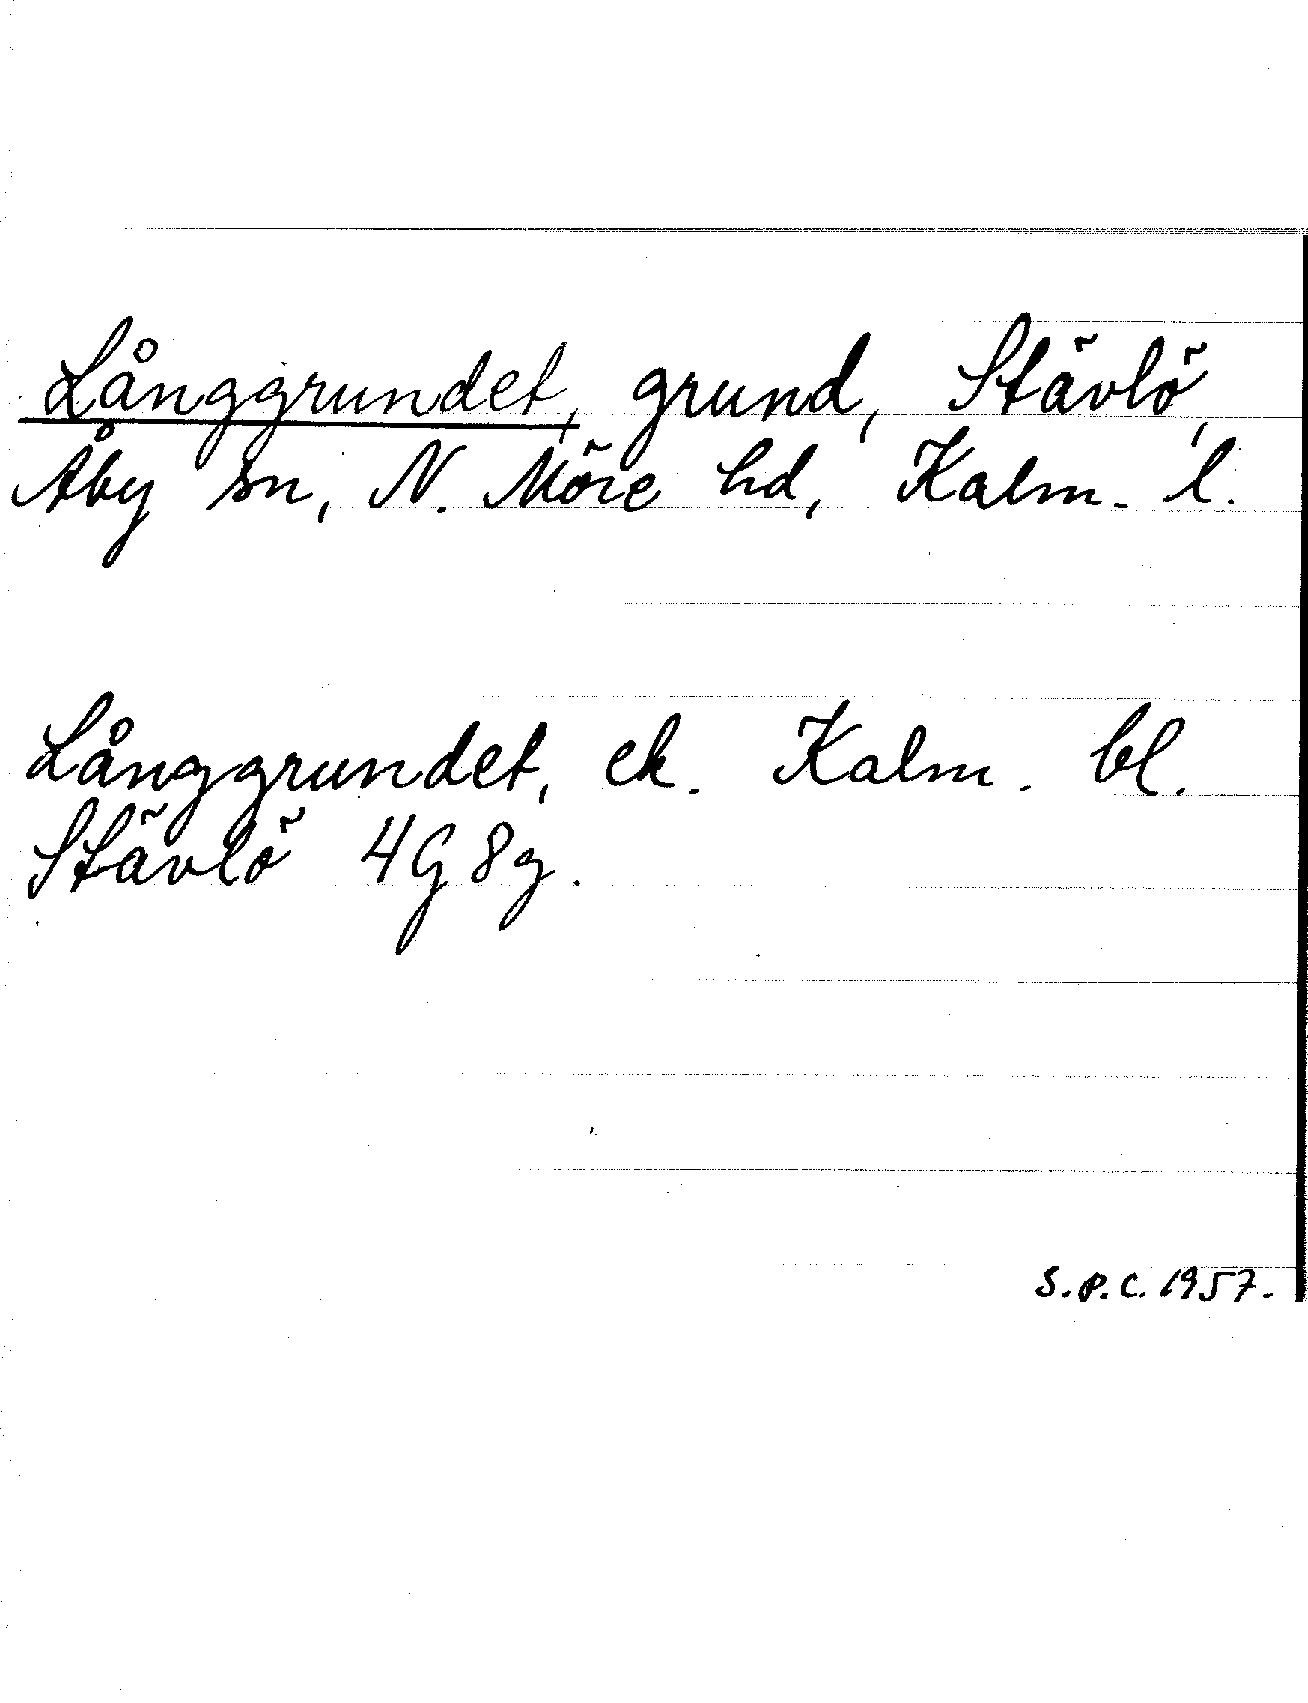 Långgrundet, grund, Stävlö,
Åby sn, N. Möre hd, Kalm. l.
Långgrundet, ek. Kalm. bl.
Stävlö 4G 8g.
S.P.C. 1957.